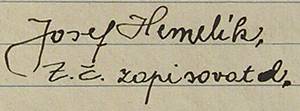 Josef Hemelík,
t. č. zapisovatel.